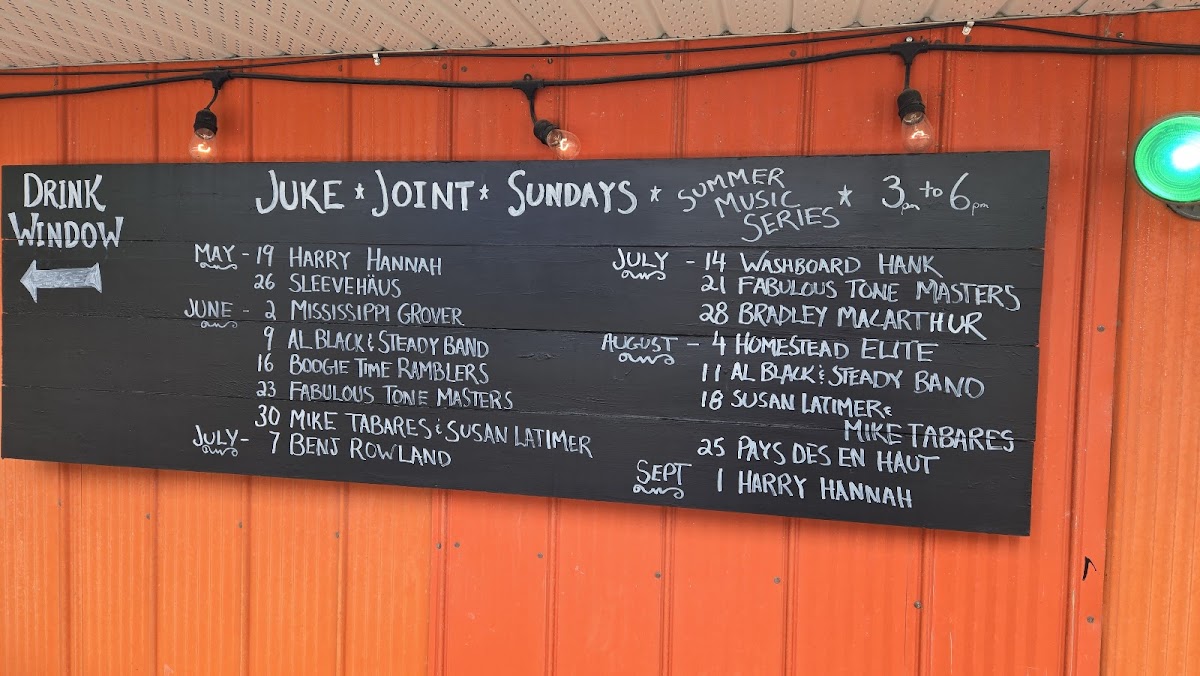 DRINK
WINDOW
JUKE * JOINT * SUNDAYS * SUMMER MUSIC SERIES * 3pm to 6pm
MAY - 19 HARRY HANNAH
26 SLEEVEHÄUS
JUNE - 2 MISSISSIPPI GROVER
9 AL BLACK & STEADY BAND
16 BOOGIE TIME RAMBLERS
23 FABULOUS TONE MASTERS
30 MIKE TABARES & SUSAN LATIMER
JULY - 7 BENJ ROWLAND
JULY - 14 WASHBOARD HANK
21 FABULOUS TONE MASTERS
28 BRADLEY MACARTHUR
AUGUST - 4 HOMESTEAD ELITE
11 AL BLACK & STEADY BAND
18 SUSAN LATIMER &
MIKE TABARES
25 PAYS DES EN HAUT
SEPT 1 HARRY HANNAH